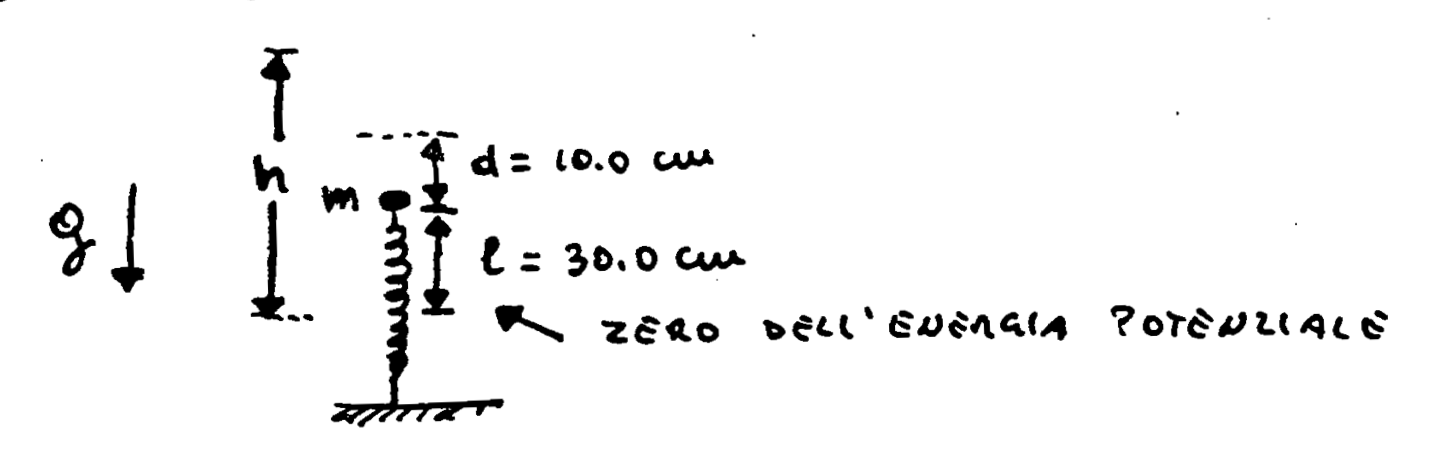 d = 10.0 cm
h
m
g
l = 30.0 cm
ZERO DELL'ENERGIA POTENZIALE